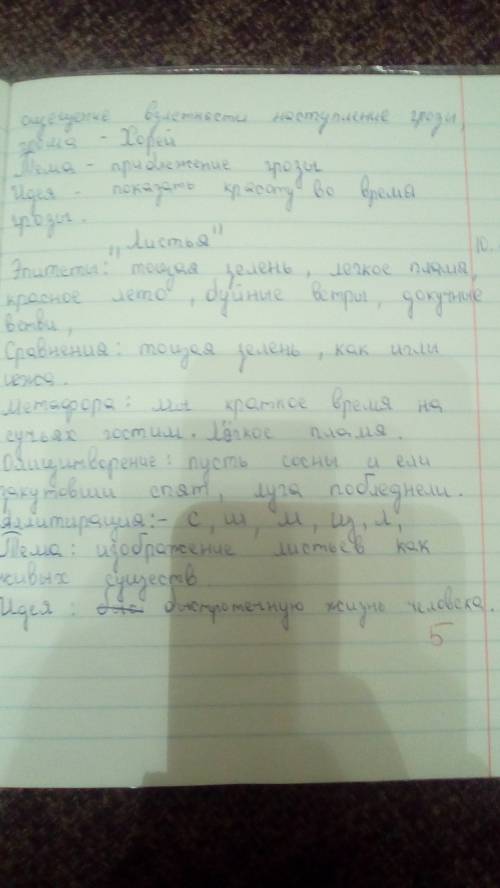 ощещение взлетности наступление грозы,
- Хорей
Тема - приближение грозы
Идея - показать красоту во время
грозы.
"Листья"
10.
Эпитеты: тощая зелень, легкое плама,
красное лето, буйные ветры, докучные
ветви,
Сравнения: тощая зелень, как игли
ежа.
Метафора: мы краткое время на
сучьях гостим. Лёгкое пламя.
Олицитворение: пусть сосны и ели
закутовши спят, луга побледнели.
Аллитирация: - с, ш, м, щ, л,
Тема: изображение листьев как
живых существ
Идея: быстротечную жизнь человека.
5